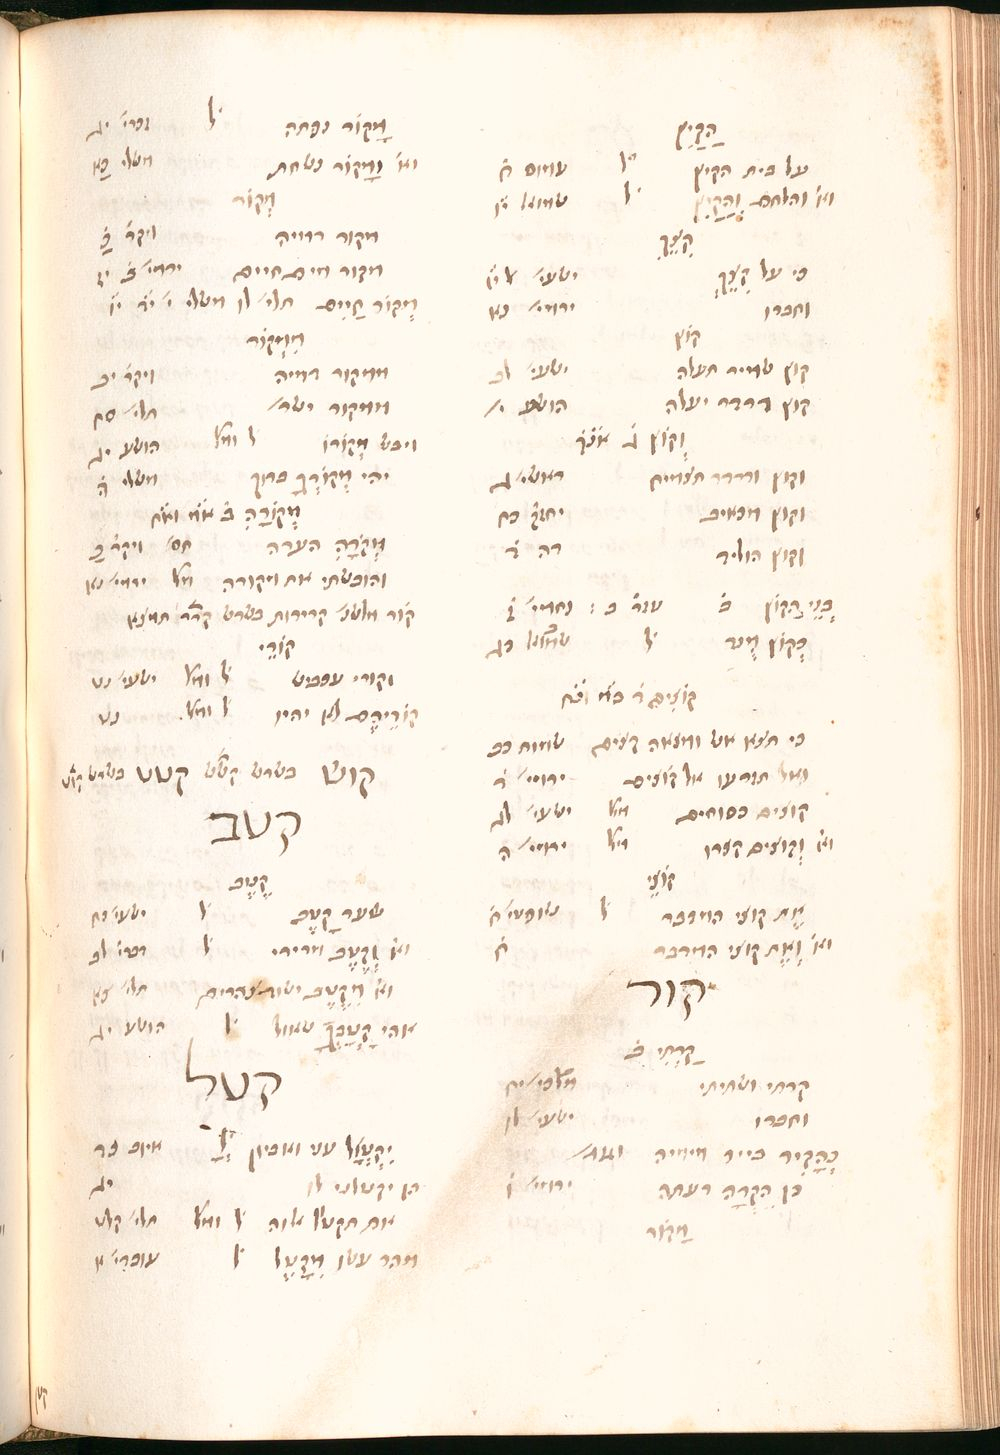 הַקַיִץ
על בית הקיץ ל' עמוס ח
וא' והלחם וְהַקַיִץ ל' שמוא' יו
קִצֵךְ
כי על קִצֵךְ ישעי'
וחברו ירמי' נא
קוֹץ
קוץ שמיר תעלה ישעי' לב
קוץ ודרדר יעלה הושע י'
וְקוֹץ ג'
וקוץ ודרדר תצמיח בראשי' ג
וקוץ מכאיב יחזק' כח
וקוץ הוליד דה ד
בְּנֵי הַקוֹץ ב עזר' ב : נחמי' ז
כְּקוֹץ מֻנד ל' שמוא' כג
קוֹצִים ד
כי תצא אש ומצאה קצים שמות כב
ואל תזרעו אל קוֹצים ירמי' ד
קוצים כסוחים מל' ישעי' לג
וא' וְקוצים קצרו מל' ירמי' יב
קוֹצֵי
אֶת קוצי המדבר ל' שופטי' ח
וא' וְאֶת קוצי המדבר ח
קור
קַרְתִּי ב
קרתי ושתיתי מלכי' יט
וחברו ישעי' לז
כְּהָקִיר ביר מימיה
כן הֵקֵרָה רעתה ירמי' ו
מָקוֹר
מָקוֹר נפתח ל' זכרי' יג
וא' וּמָקוֹר נשחת משלי כה
מְקוֹר
מקור דמיה ויקר' כ
מקור מים חיים ירמי' ב יז
מְקוֹר חַיִים תלי' לו משלי י' יג' יו'
מִמְּקוֹר
ממקור דמיה ויקר' יב
ממקור ישר' תלי' סח
ויבש מְקוֹרוֹ ל' ומל' הושע יג
יהי מְקוֹרְךָ ברוך משלי ה
מְקוֹרָהּ ב
מְקֹרָהּ הערה חס' ויקר' כ
והובשתי את מקורה מל' ירמי' נא
קור מלשו' קרירות בשרש קרר תמצא
קוּרֵי
וקורי עכביש ל' ומל' ישעי' נט
קוּרֵיהֶם לא יהיו ל' ומל' נט
קוש בשרש קשש קטט בשרש קוט
קטב
קֶטֶב
שער קֶטֶב ל' ישעי' כח
וא' וְקֶטֶב מרירי ל' דברי' לב
וא' מִקֶּטֶב ישוד צהרים תלי' צא
אהי קָטָבְךָ שאול ל' הושע יג
קטל
יִקְטָל עני ואביון איוב כד
הן יקטלני לו יג
אם תקטול אלוה ל' ומל' תלי' קלט
מהר עשו מִקָטֶל ל' עובדי' א
קטן